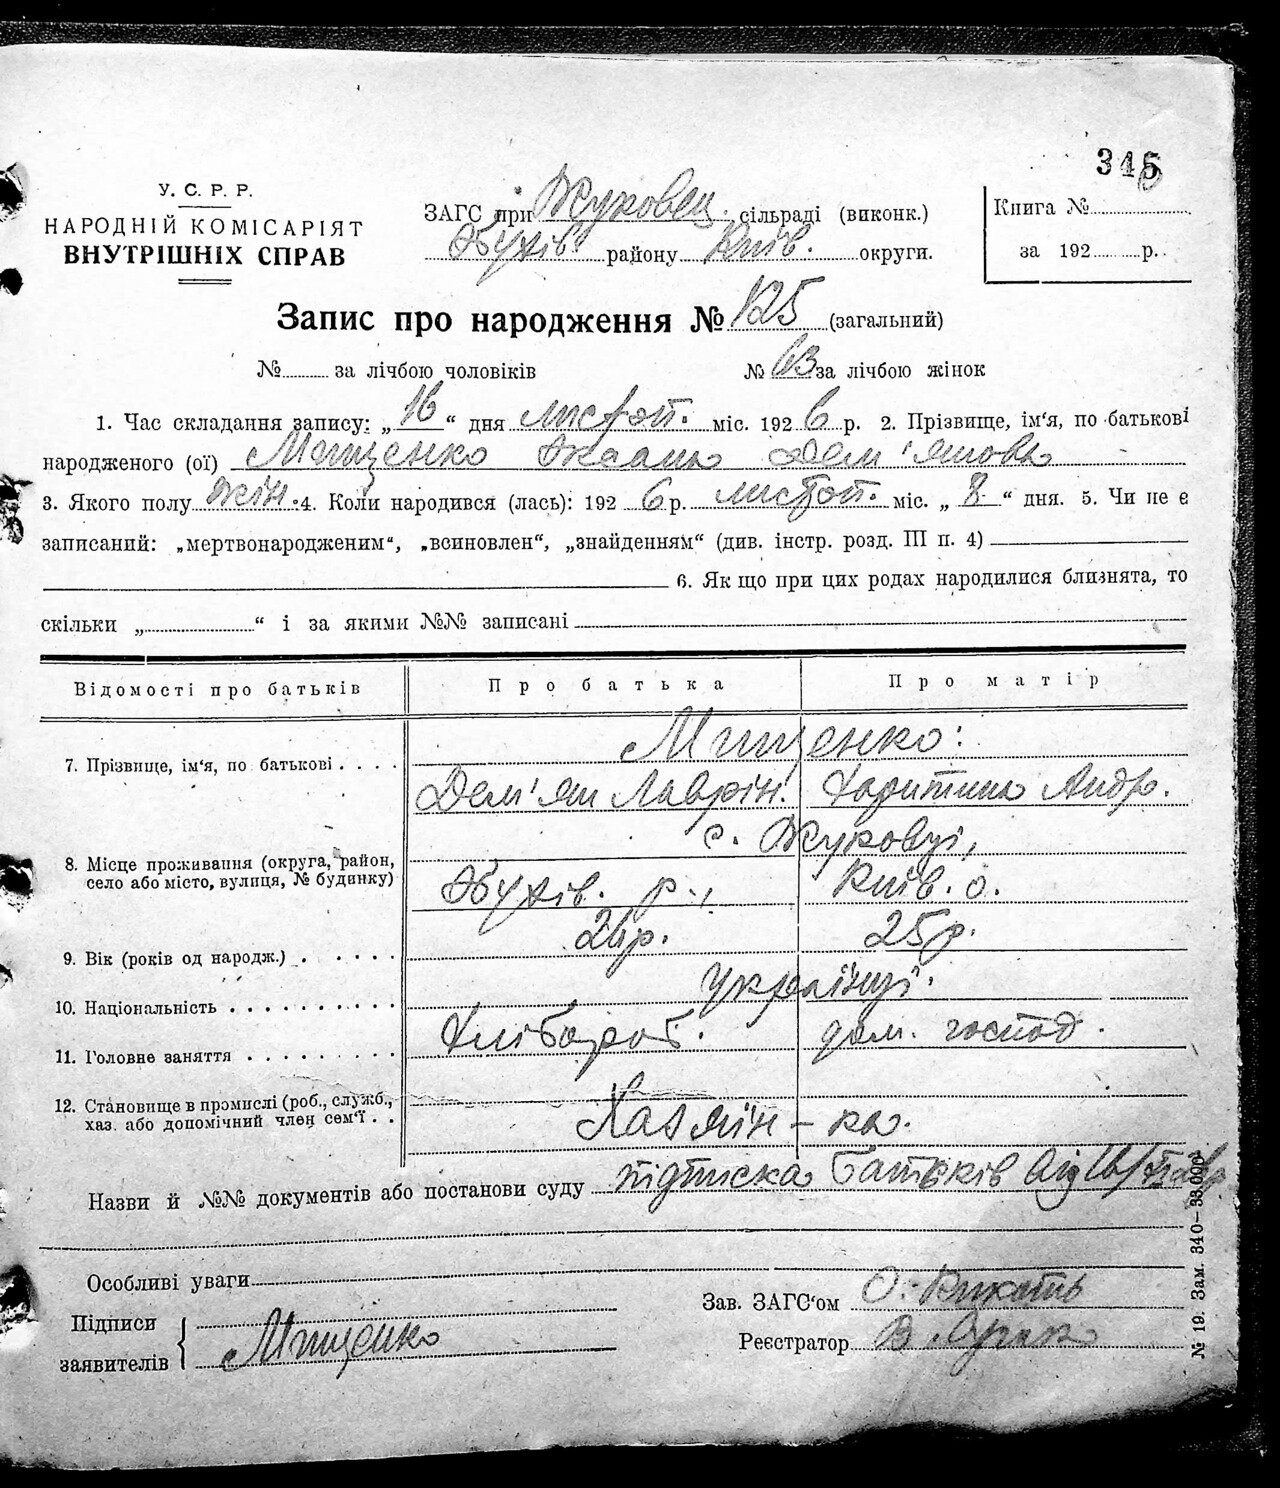 346
У. С. Р. Р.
НАРОДНІЙ КОМІСАРІЯТ
ВНУТРІШНІХ СПРАВ
ЗАГС при Жуковец. сільраді (виконк.)
Обухів. району Київ. округи.
Книга №
за 192 р.
Запис про народження № 125 (загальний)
№ за лічбою чоловіків № 63 за лічбою жінок
1. Час складання запису: „16“ дня листоп. міс. 1926 р. 2. Прізвище, ім‘я, по батькові
народженого (ої) Мищенко Оксана Дем‘янова
3. Якого полу жін. 4. Коли народився (лась): 1926 р. листоп. міс. „8“ дня. 5. Чи не є
записаний: „мертвонародженим“, „всиновлен“, „знайденням“ (див. інстр. розд. III п. 4)
6. Як що при цих родах народилися близнята, то
скільки „ “ і за якими №№ записані
Відомості про батьків Про батька Про матір
Мищенко:
7. Прізвище, ім‘я, по батькові Дем‘ян Лаврін. Харитина Андр.
с. Жуковці,
8. Місце проживання (округа, район,
село або місто, вулиця, № будинку) Обухів. р., Київ. о.
9. Вік (років од народж.) 26 р. 25 р.
10. Національність українці.
11. Головне заняття Хлібороб. дом. господ.
12. Становище в промислі (роб., служб.,
хаз. або допомічний член сем‘ї Хазяїн – ка.
Назви й №№ документів або постанови суду підписка батьків від 16/
Особливі уваги
Зав. ЗАГС‘ом
Підписи
заявителів Мищенко
Реєстратор В.
№ 19. Зам. 340—33.000